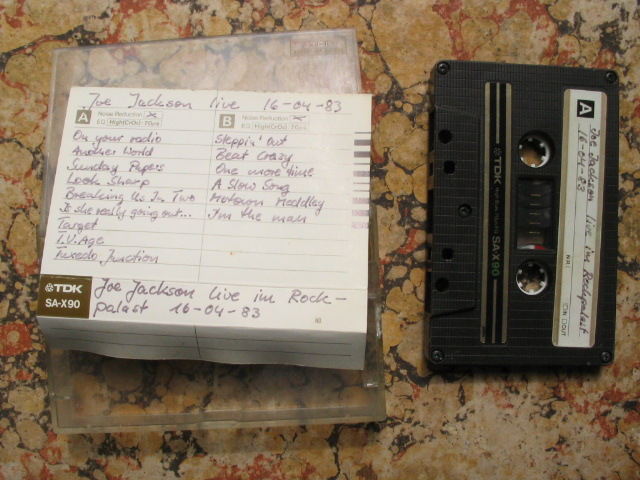 Joe Jackson live 16-04-83
A Noise Reduction
EQ High(CrO2) 70μs
On your radio
Another World
Sunday Papers
Look Sharp
Breaking Us In Two
Is she really going out...
Target
T.V. Age
Tuxedo Junction
B Noise Reduction
EQ High(CrO2) 70μs
Steppin' Out
Beat Crazy
One more time
A Slow Song
Motown Meddley
I'm the man
TDK
SA-X90
Joe Jackson live im Rock-
palast 16-04-83
A
Joe Jackson live im Rockpalast
16-04-83
NR I
IN OUT
TDK
SA-X90